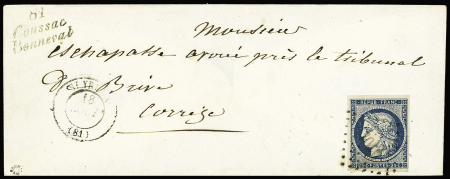 81
Coussac
Bonneval
Monsieur
eschapasse avoué près le tribunal
de Brive
Corrèze
ST YRI
18
(81)
REPUB. FRANC.
POSTES